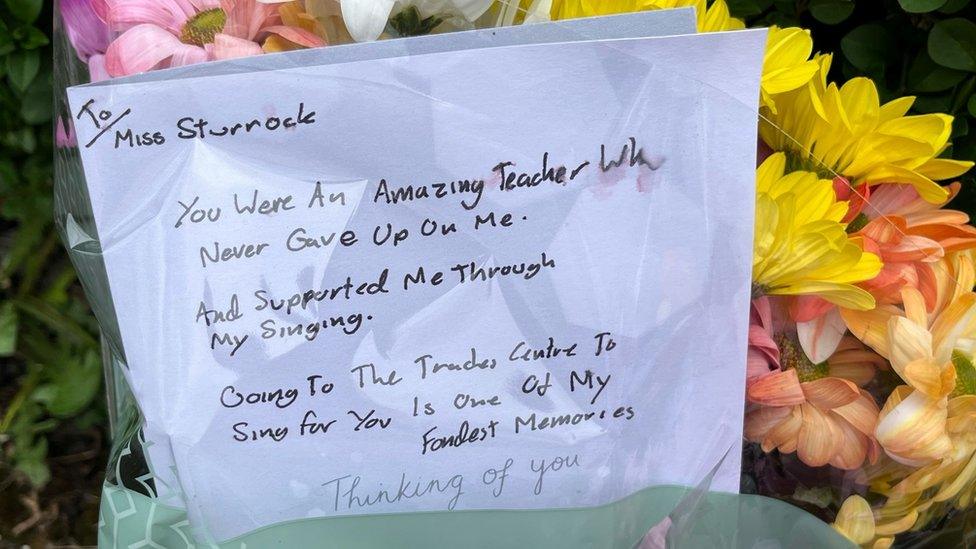 To/
Miss Sturrock
You Were An Amazing Teacher Wh
Never Gave Up On Me.
And Supported Me Through
My Singing.
Going To The Trades Centre To
Sing for You Is One Of My
Fondest Memories
Thinking of you